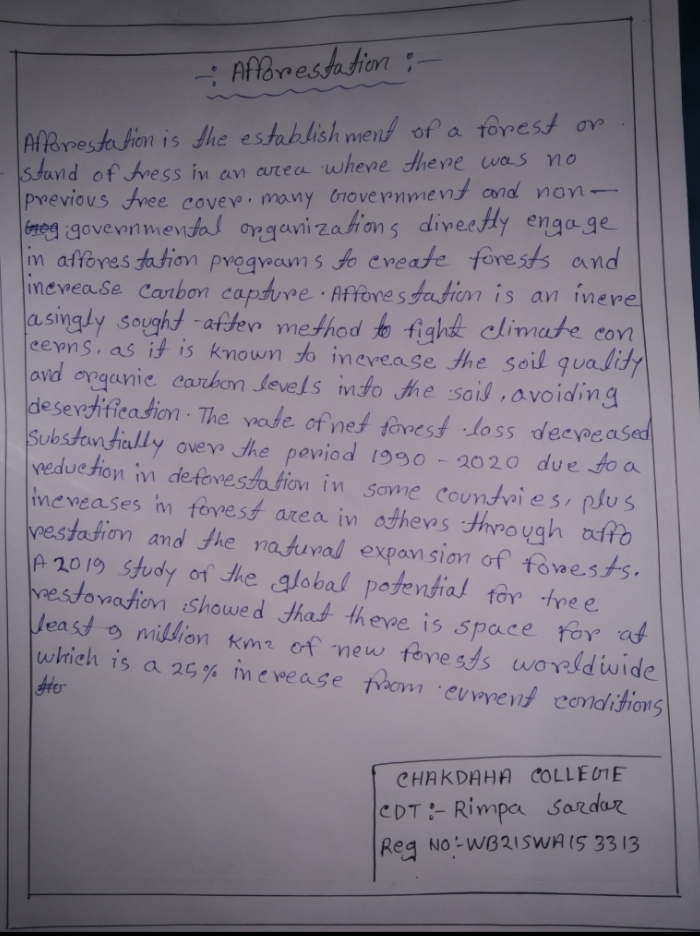 -: Afforestation :-
Afforestation is the establishment of a forest or
stand of tress in an area where there was no
previous tree cover. many Government and non-
governmental organizations directly engage
in afforestation programs to create forests and
increase carbon capture. Afforestation is an incre
asingly sought-after method to fight climate con
cerns, as it is known to increase the soil quality
and organic carbon levels into the soil, avoiding
desertification. The rate of net forest loss decreased
substantially over the period 1990-2020 due to a
reduction in deforestation in some countries, plus
increases in forest area in others through affo
restation and the natural expansion of forests.
A 2019 study of the global potential for tree
restoration showed that there is space for at
least 9 million km2 of new forests worldwide
which is a 25% increase from current conditions
CHAKDAHA COLLEGE
CDT :- Rimpa Sardar
Reg NO:- WB21SWA153313